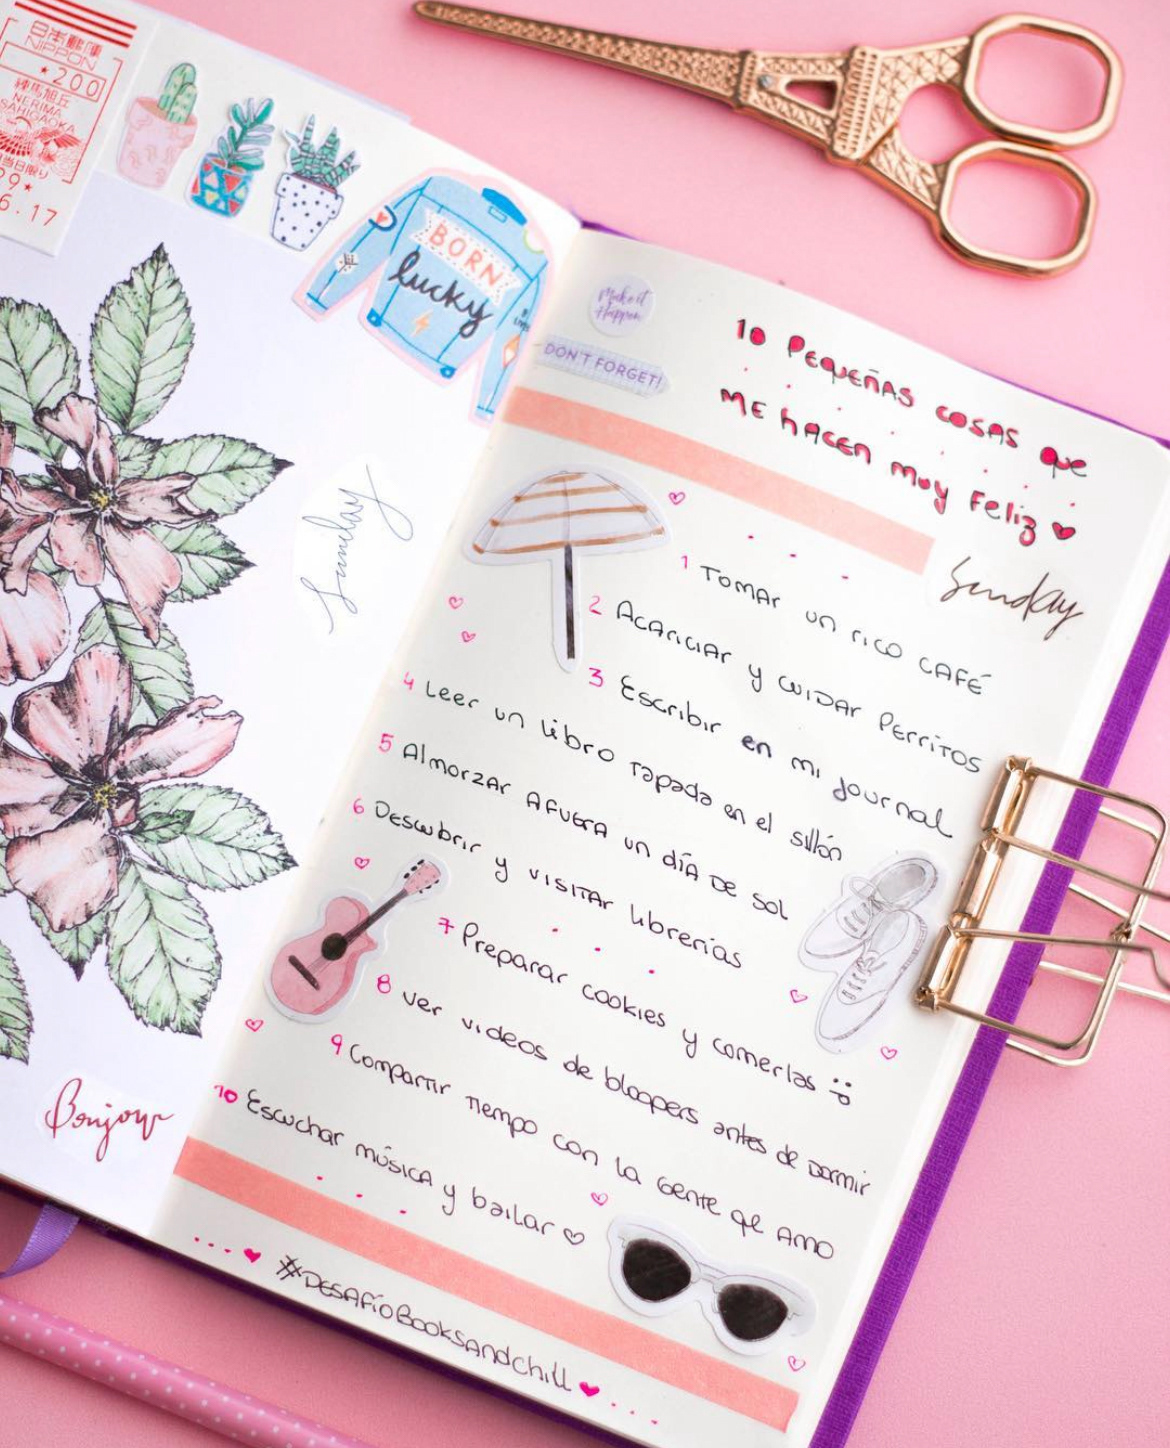 日本郵便
NIPPON
★200
練馬旭丘
NERIMA
29★
6.17
BORN
lucky
Sunday
Bonjour
Make it
Happen
DON'T FORGET!
10 PEQUEÑAS COSAS QUE
ME HACEN MUY FELIZ ♥
Sunday
1 TOMAR UN RICO CAFÉ
2 ACARICIAR Y CUIDAR PERRITOS
3 Escribir en mi journal
4 Leer un libro tapada en el sillón
5 Almorzar AFUERA un día DE sol
6 Descubrir y visitar librerías
7 Preparar cookies y comerlas :P
8 ver videos de bloopers antes de DORMIR
9 Compartir tiempo con la gente qe AMO
10 Escuchar música y bailar ♡
....♥ #DESAFíoBooksandchill ♥....